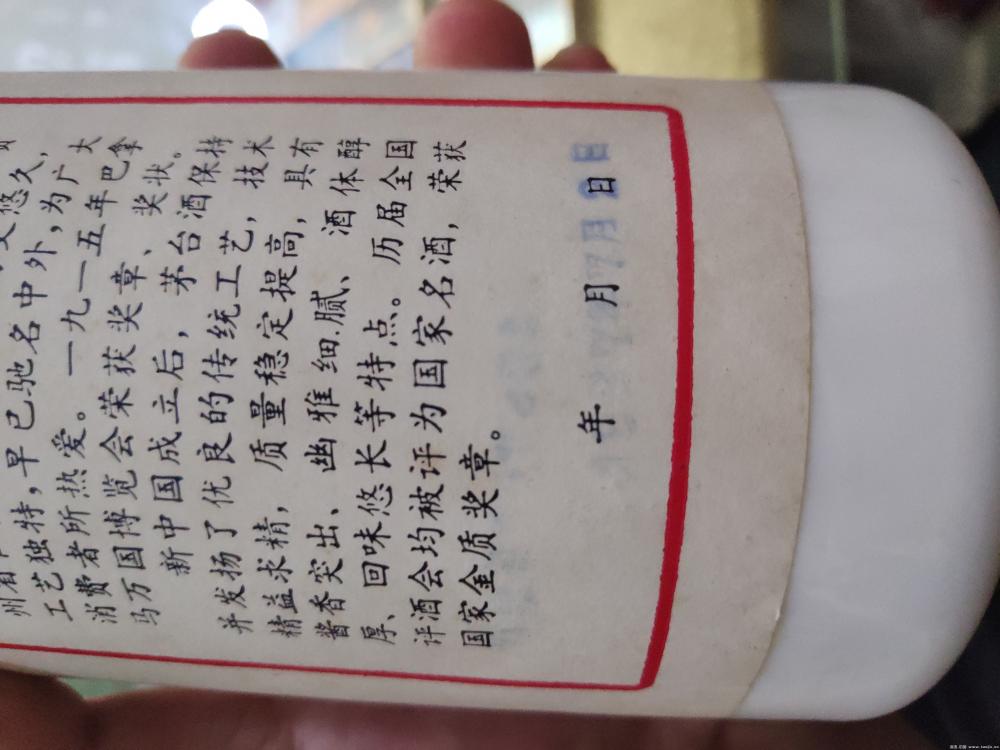 悠久，
工艺独特，早已驰名中外，为广大
消费者所热爱。一九一五年巴拿
马万国博览会荣获奖章、奖状。
新中国成立后，茅台酒保持
并发扬了优良的传统工艺，技术
精益求精，质量稳定提高，具有
酱香突出、幽雅细腻、酒体醇
厚、回味悠长等特点。历届全国
评酒会均被评为国家名酒，荣获
国家金质奖章。
年 月 日